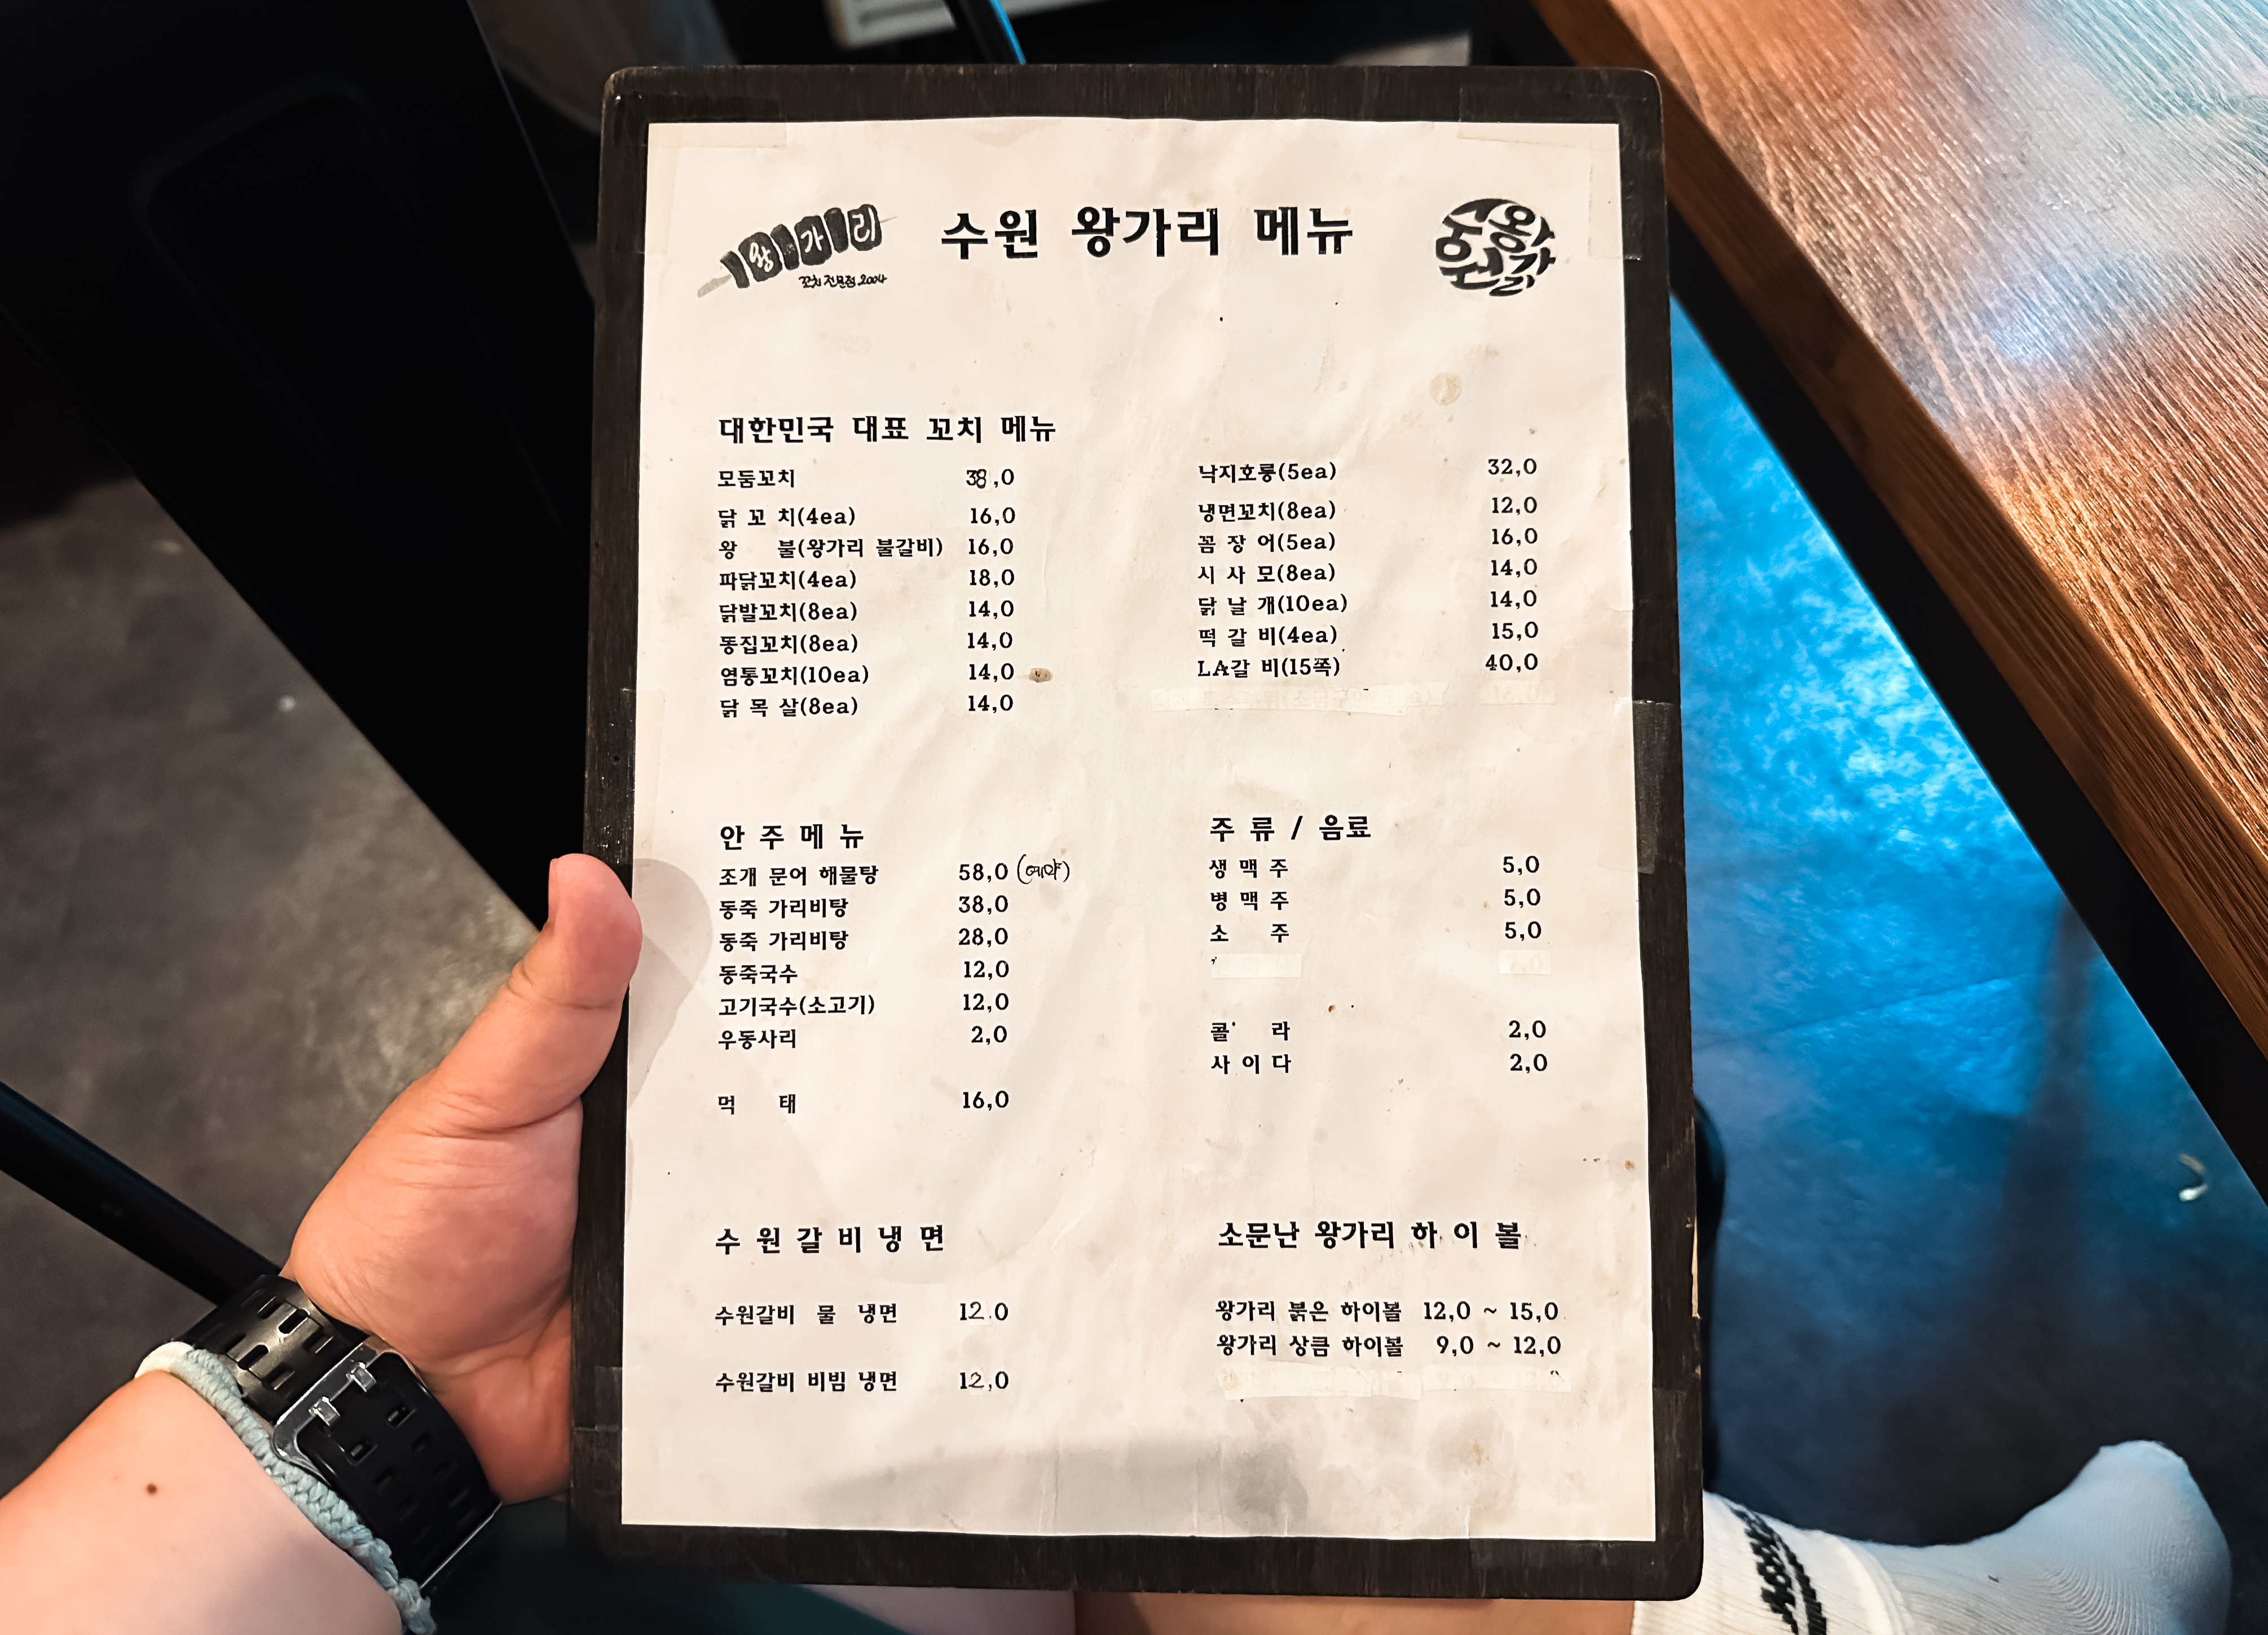 왕가리
꼬치 전문점 2004
수원 왕가리 메뉴
수원왕갈
대한민국 대표 꼬치 메뉴
모둠꼬치 38,0
닭 꼬 치(4ea) 16,0
왕 불(왕가리 불갈비) 16,0
파닭꼬치(4ea) 18,0
닭발꼬치(8ea) 14,0
똥집꼬치(8ea) 14,0
염통꼬치(10ea) 14,0
닭 목 살(8ea) 14,0
낙지호롱(5ea) 32,0
냉면꼬치(8ea) 12,0
꼼 장 어(5ea) 16,0
시 사 모(8ea) 14,0
닭 날 개(10ea) 14,0
떡 갈 비(4ea) 15,0
LA갈 비(15쪽) 40,0
안 주 메 뉴
조개 문어 해물탕 58,0 (예약)
동죽 가리비탕 38,0
동죽 가리비탕 28,0
동죽국수 12,0
고기국수(소고기) 12,0
우동사리 2,0
먹 태 16,0
주 류 / 음료
생 맥 주 5,0
병 맥 주 5,0
소 주 5,0
콜 라 2,0
사 이 다 2,0
수 원 갈 비 냉 면
수원갈비 물 냉면 12.0
수원갈비 비빔 냉면 12,0
소문난 왕가리 하 이 볼
왕가리 붉은 하이볼 12,0 ~ 15,0
왕가리 상큼 하이볼 9,0 ~ 12,0